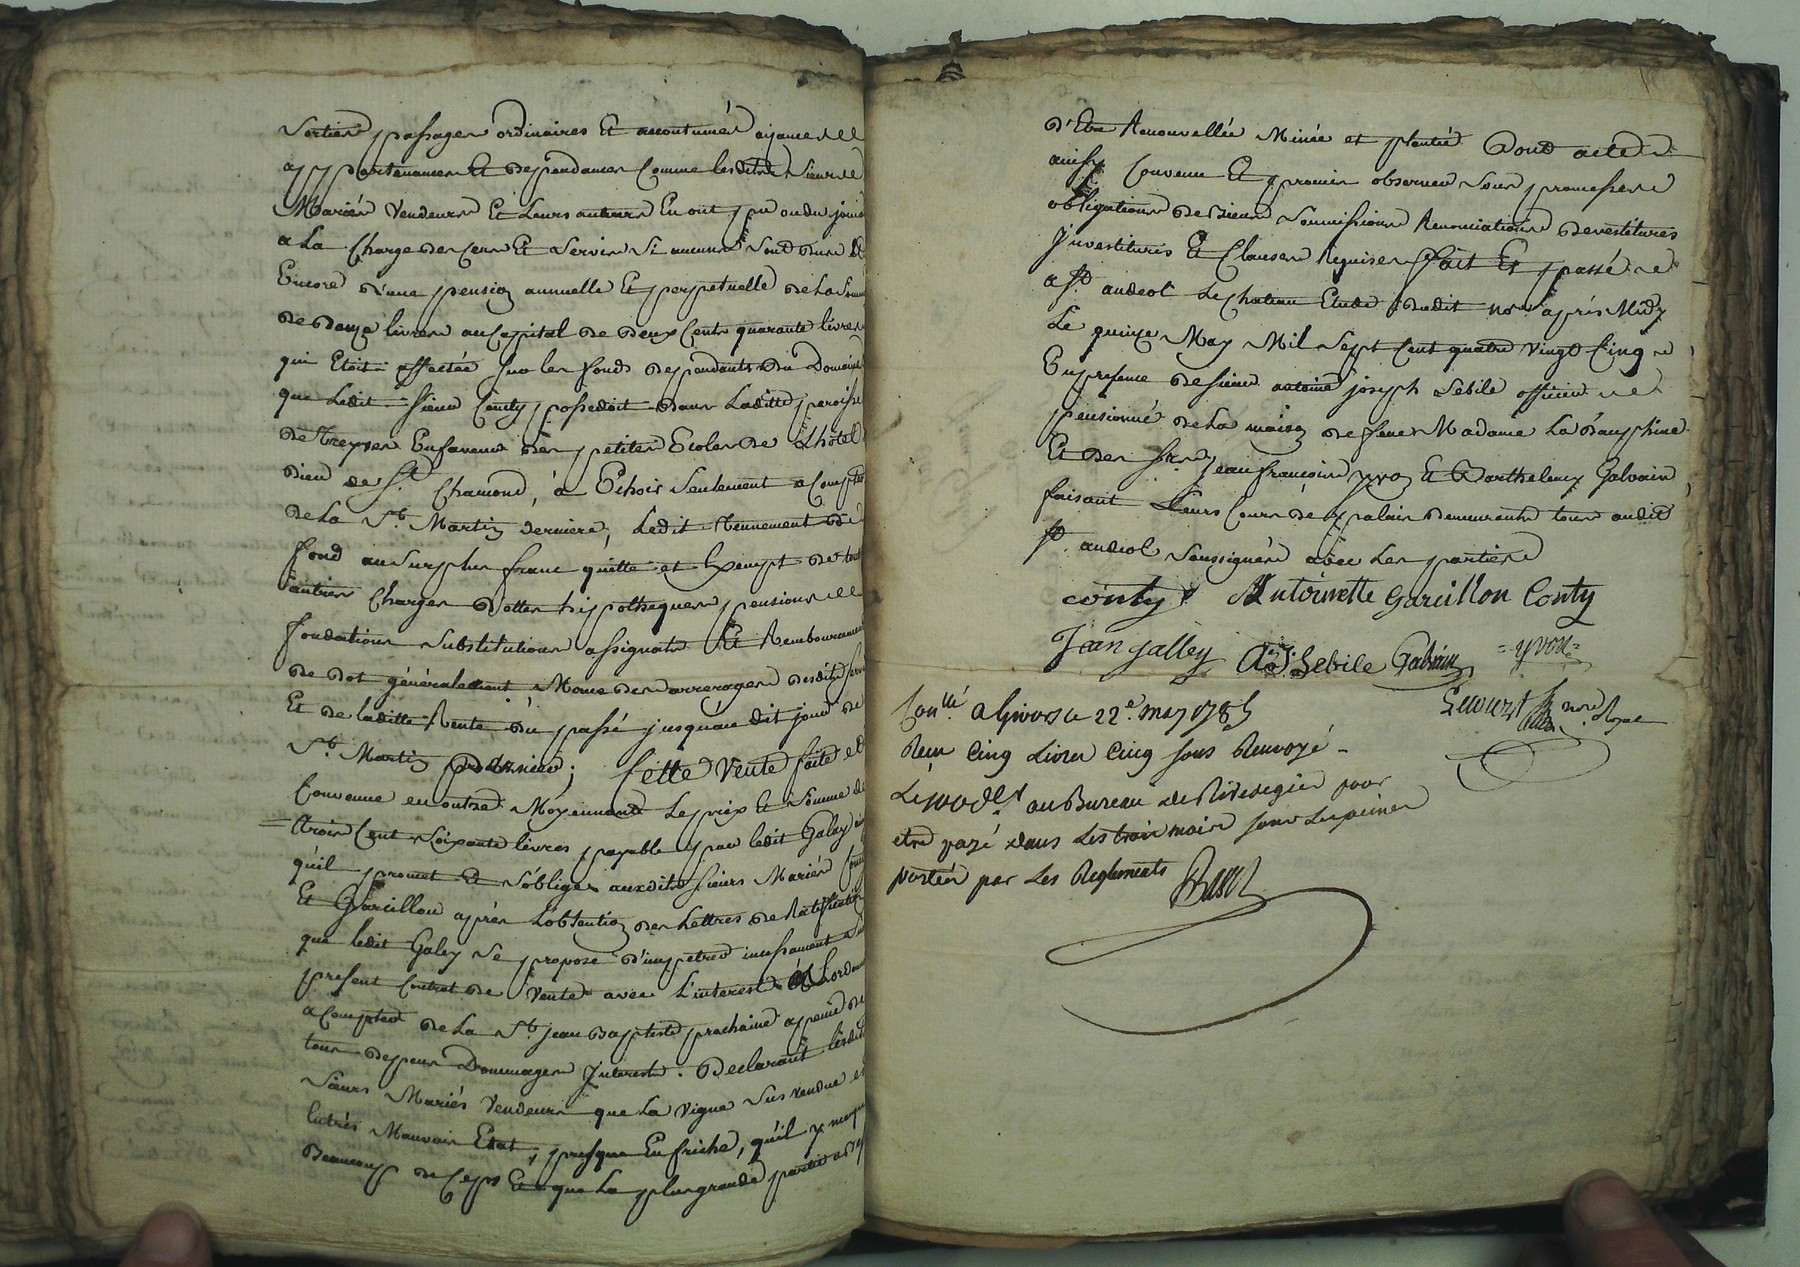 Sorties passages ordinaires Et accoutumés aisances
appartenances Et dependances Comme lesdits Sieurs
Mariés Vendeurs Et Leurs auteurs En ont pu ou du jouir
a La Charge des Cens Et Servis Si aucuns Sont dus Et
Encore d'une pension annuelle Et perpetuelle de La Somme
de douze livres au Capital de deux Cents quarante livres
qui Etoit affectée sur les fonds dependants du Domaine
que Ledit Sieur Conty possedoit dans Laditte paroisse
de Treyves En faveur des petites Ecoles de L'hôtel
Dieu de St. Chamond, à Echoir Seulement a Compter
de La St. Martin derniere, Ledit tennement de
fond au Surplus franc quitte et Exempt de tout
autres Charges dettes hippotheques pensions
fondations Substitutions assignats Et Remboursements
de dot généralement Meme des arrerages desdits servis
Et de laditte Rente du passé jusqu'au dit jour de
St. Martin dernier; Cette Vente faite et
Convenue en outre Moyennant Le prix Et Somme de
trois Cent Soixante livres payable par ledit Galey
qu'il promet Et s'oblige auxdits sieurs Mariés Conty
Et Garcillon après L'obtention des Lettres de Ratification
que ledit Galey Se propose d'impetrer incessament Sur
present Contrat de Vente avec L'interest à L'ordonnance
a Compter de La St. jean Baptiste prochaine a peine de
tous depens Dommages Interests. Declarant lesdits
Sieurs Mariés Vendeurs que La Vigne Sus vendue est
En très Mauvais Etat, presque En friche, qu'il y manque
Beaucoup de Ceps Et que La plus grande partie a
d'Etre Renouvellée Minée et plantée Dont acte
ainsy Convenu Et promis observer Sous promesses
obligations de biens Soumissions Renonciations devestitures
Investitures Et Clauses Requises fait Et passé
a St. andeol Le chateau Etude dudit nore. après Midy
Le quinze May Mil Sept Cent quatre vingt Cinq
En presence de Sieur antoine joseph Sebile officier
pensionné de La maison de feue Madame La dauphine
Et des Srs. Jean francoise yvon Et Barthelemy Galvain
faisant Leurs Cours de palais demeurants tous audit
St. andeol Soussignés avec Les parties
conty Antoinette Garcillon Conty
Jean galley A. J. Sebile Galvain =yvon=
nore. Royal
Conllé. a Givors le 22e. may 1785
Reçu Cinq Livres Cinq sous Renvoyé
Le 100e. dt. au Bureau de Rivedegier pour
etre payé dans Les trois mois sous Les peines
portées par Les Reglements